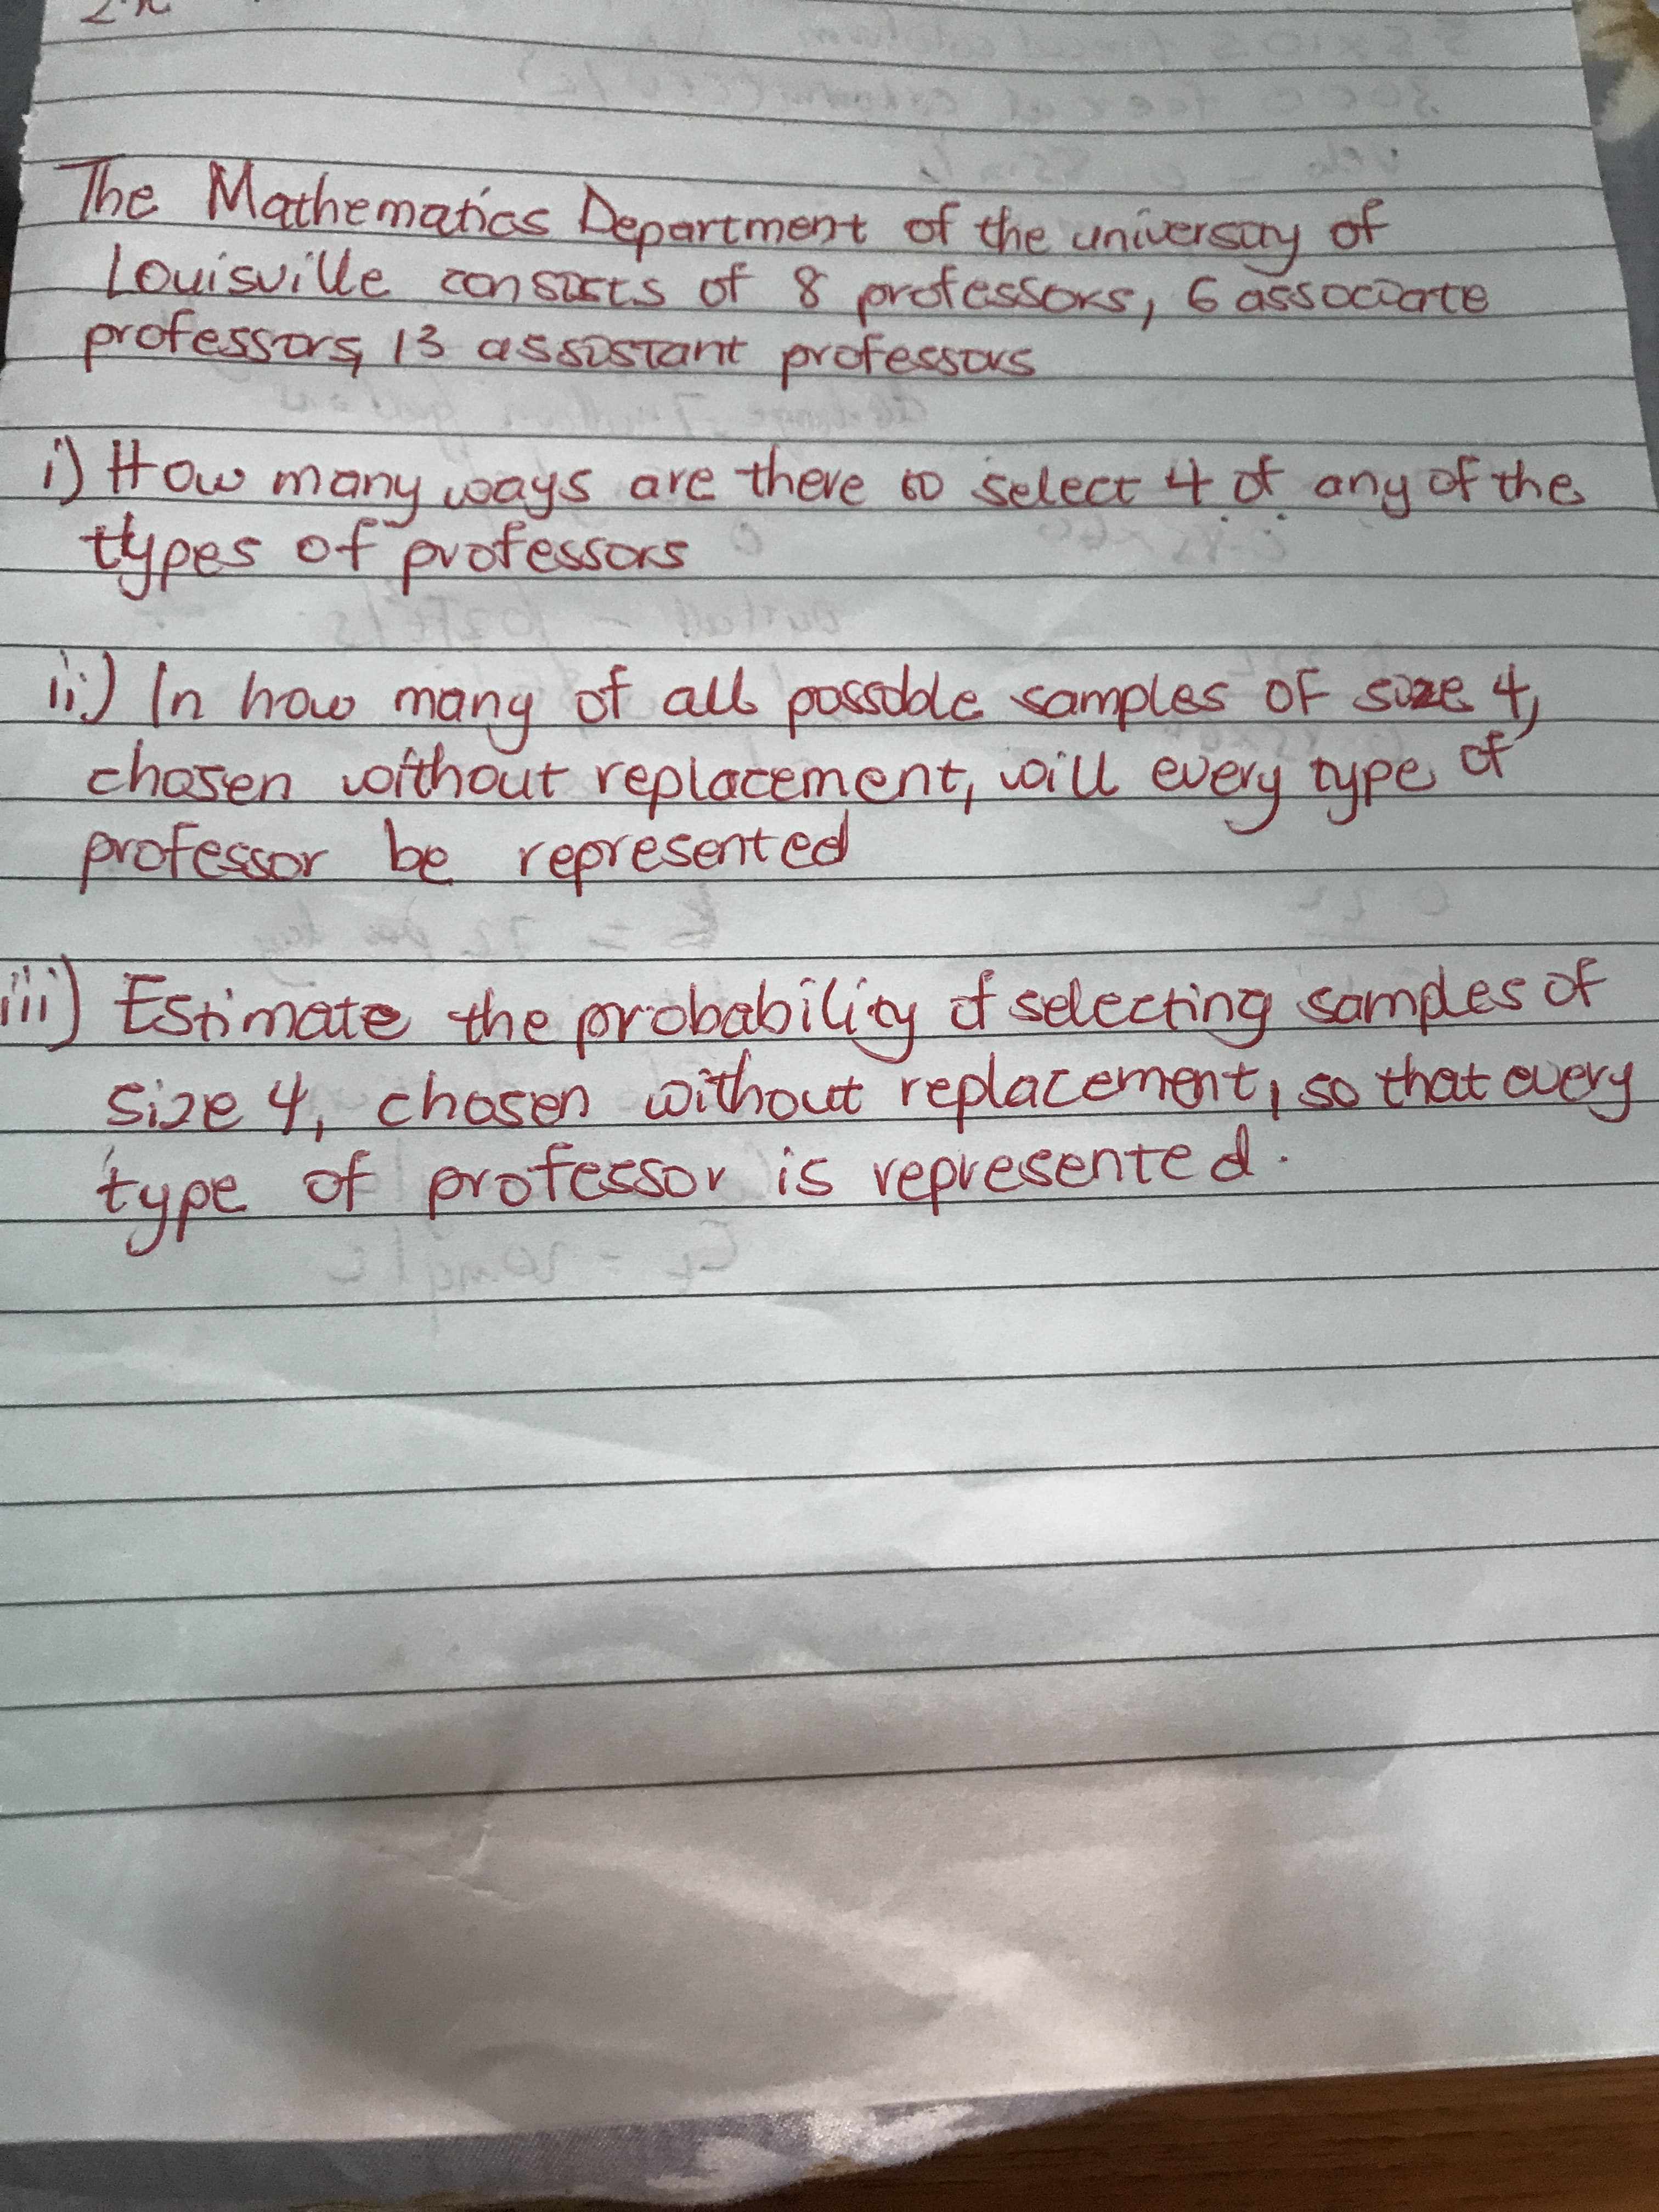 The Mathematics Department of the university of
Louisville consists of 8 professors, 6 associate
professors, 13 assistant professors
i) How many ways are there to select 4 of any of the
types of professors
ii) In how many of all possible samples of size 4,
chosen without replacement, will every type of
professor be represented
iii) Estimate the probability of selecting samples of
size 4, chosen without replacement, so that every
type of professor is represented.